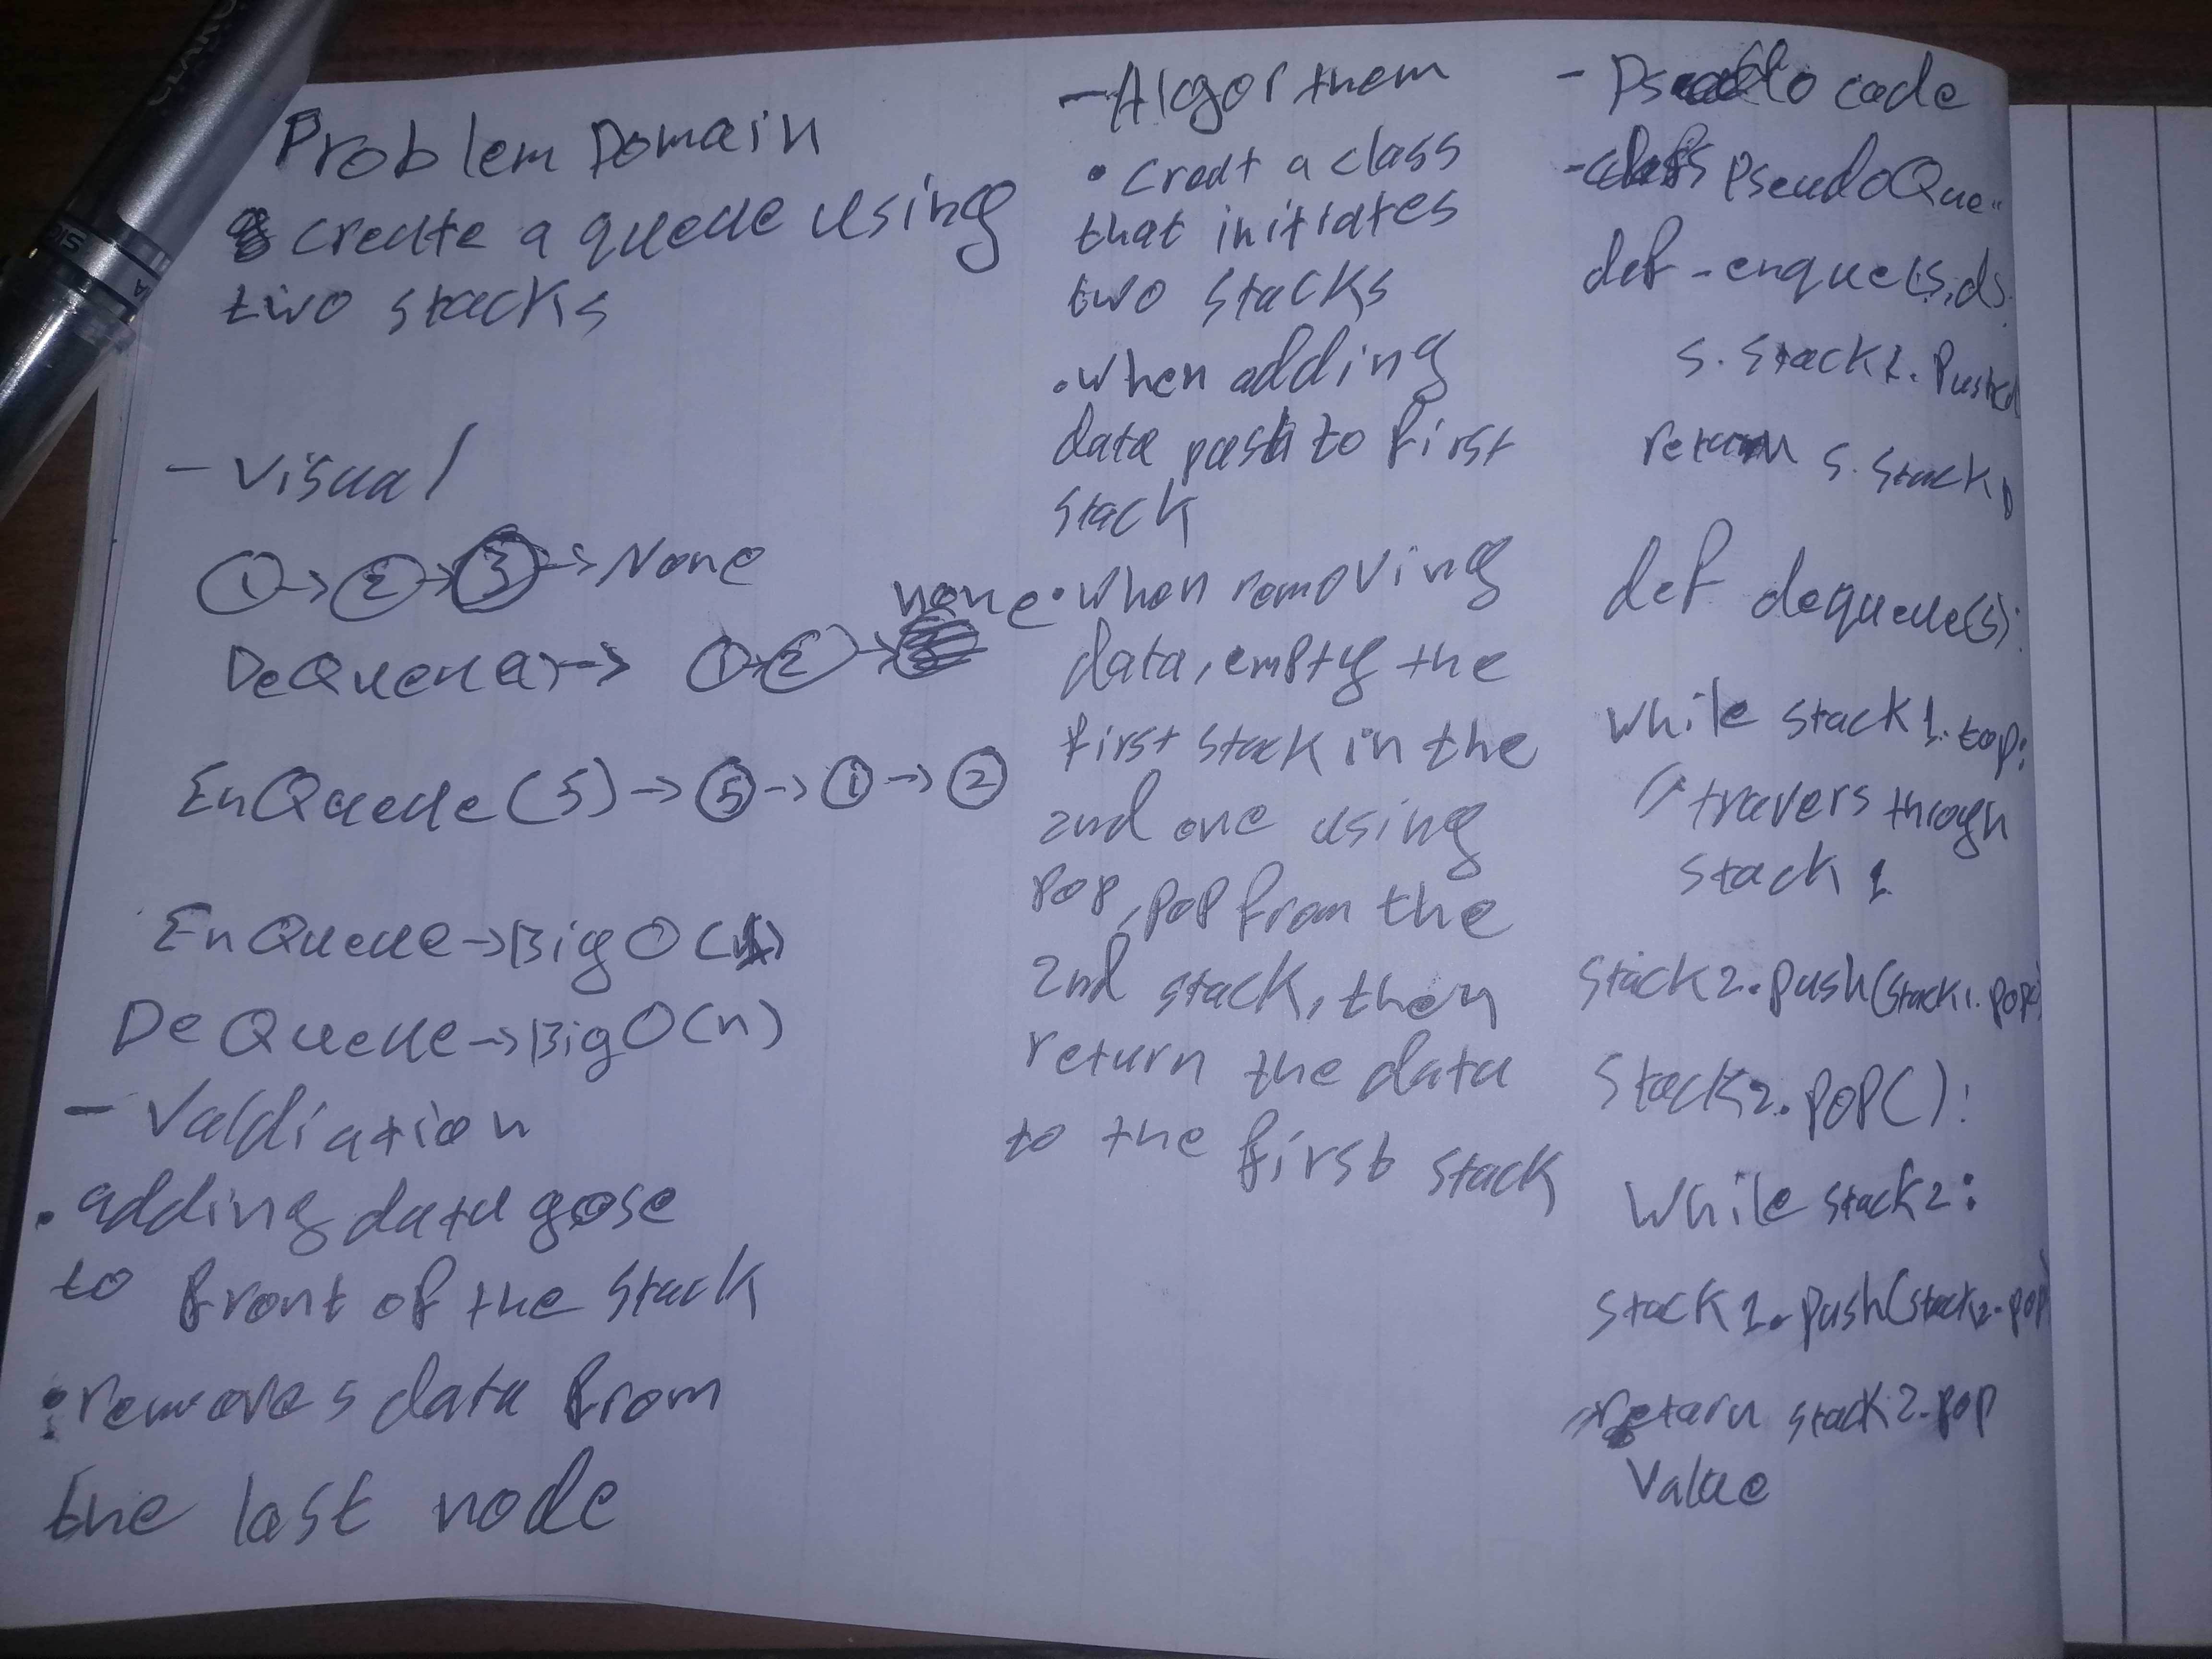 Problem Domain
create a queue using
two stacks
- Visual
1 -> 2 -> 3 -> None
none
DeQueue() -> 1 -> 2 ->
EnQueue(5) -> 5 -> 1 -> 2
EnQueue -> Big O(1)
DeQueue -> Big O(n)
- Valdiation
• adding data gose
to front of the stack
• removes data from
the last node
- Algorthem
• creat a class
that initiates
two stacks
• when adding
data push to first
stack
• when removing
data, empty the
first stack in the
2nd one using
pop, pop from the
2nd stack, then
return the data
to the first stack
- code
- class PseudoQue
def - enque(s,d)
s. stack1. Push(d
return s. stack1
def dequeue(s):
while stack1.top:
travers through
stack 1
stack2.push(stack1.pop()
stack2.pop():
while stack2:
stack1.push(stack2.pop
return stack2.pop
Value